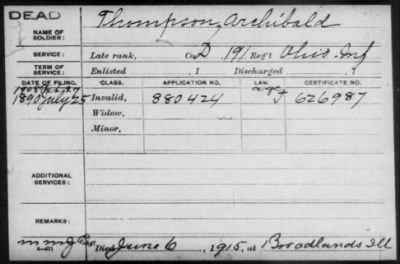 DEAD
NAME OF SOLDIER: Thompson, Archibald
SERVICE: Late rank, Co. D, 191 Reg't Ohio Inf
TERM OF SERVICE: Enlisted , 1 Discharged , 1
DATE OF FILING. CLASS. APPLICATION NO. LAW. CERTIFICATE NO.
1890 July 25 Invalid, 880424 J 626987
Widow,
Minor,
ADDITIONAL SERVICES:
REMARKS:
Died June 6, 1915, at Broadlands Ill